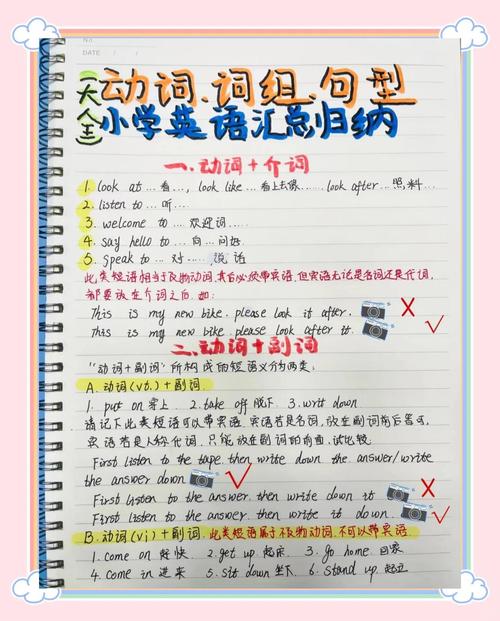 No.
DATE / /
一大全 动词、词组、句型
小学英语汇总归纳
一.动词+介词
1. look at …看…, look like …看上去像…… look after …照料…
2. listen to …听…
3. welcome to …欢迎词……
4. say hello to …向…问好
5. speak to …对……说话
此类短语相当于及物动词,其后必须带宾语,但宾语无论是名词还是代词,
都要放在介词之后.如:
This is my new bike, please look it after. X
This is my new bike, please look after it. √
二.动词+副词
"动词+副词"所构成的短语义分为两类:
A.动词(vt.)+副词
1. put on 穿上 2. take off 脱下 3. writ down
请记下此类短语可以带宾语,宾语若是名词,放在副词前后皆可,
宾语若是人称代词,只能放在副词的前面.试比较
First listen to the tape, then write down the answer/write
the answer down √
First listen to the answer, then write down it X
First listen to the answer, then write it down. √
B.动词(vi)+副词.此类短语属于不及物动词,不可以带宾语
1. come on 赶快 2. get up 起床 3. go home 回家
4. come in 进来 5. sit down 坐下 6. stand up 起立